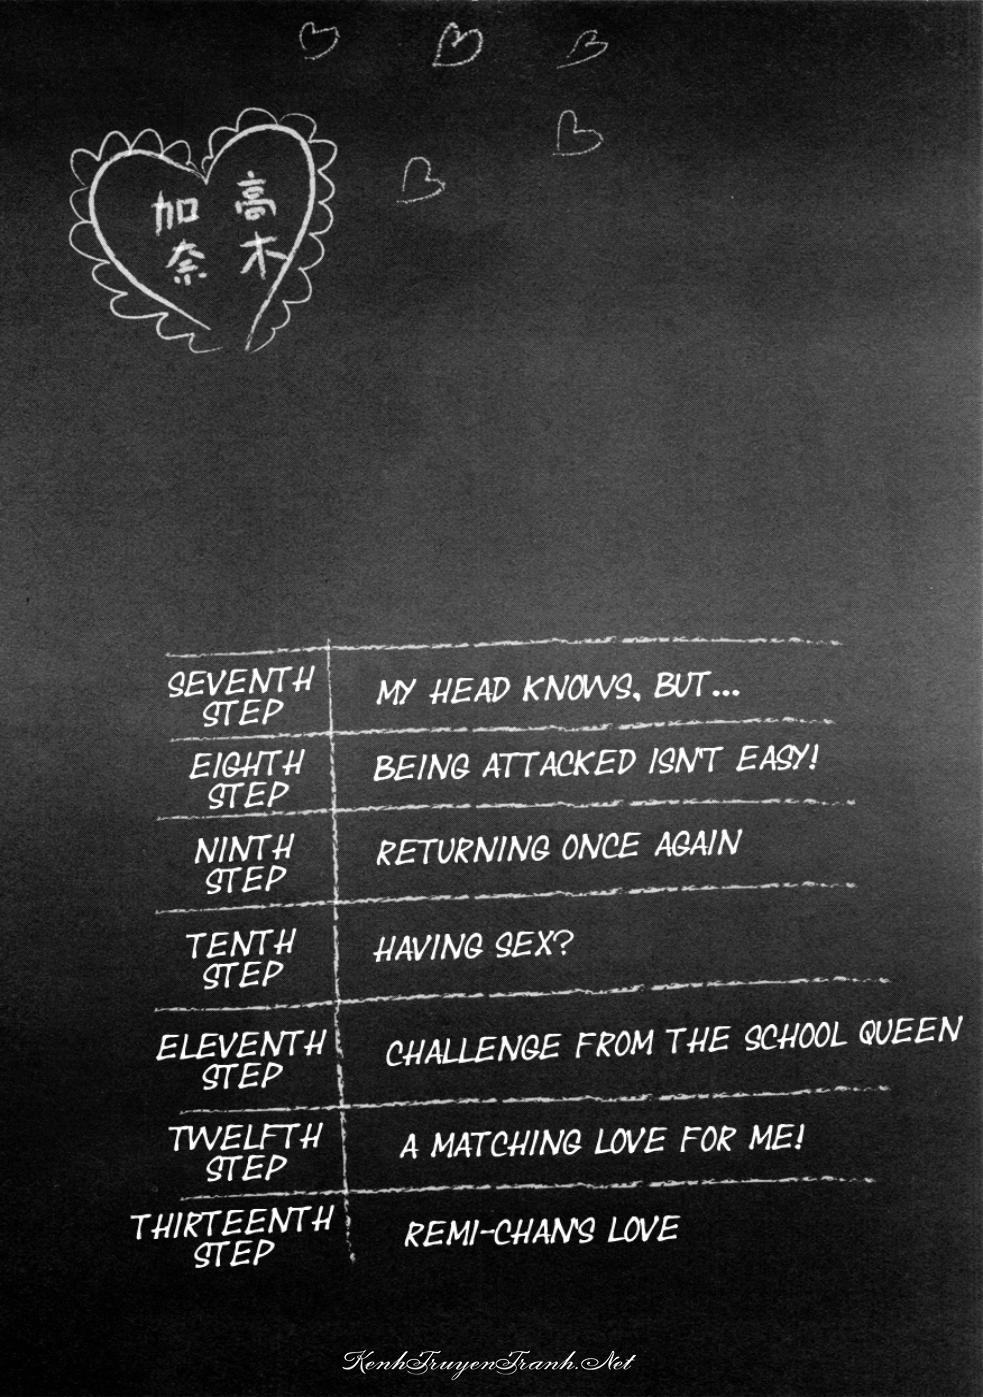 高木
加奈
SEVENTH
STEP
MY HEAD KNOWS, BUT...
EIGHTH
STEP
BEING ATTACKED ISN'T EASY!
NINTH
STEP
RETURNING ONCE AGAIN
TENTH
STEP
HAVING SEX?
ELEVENTH
STEP
CHALLENGE FROM THE SCHOOL QUEEN
TWELFTH
STEP
A MATCHING LOVE FOR ME!
THIRTEENTH
STEP
REMI-CHAN'S LOVE
KenhTruyenTranh.Net